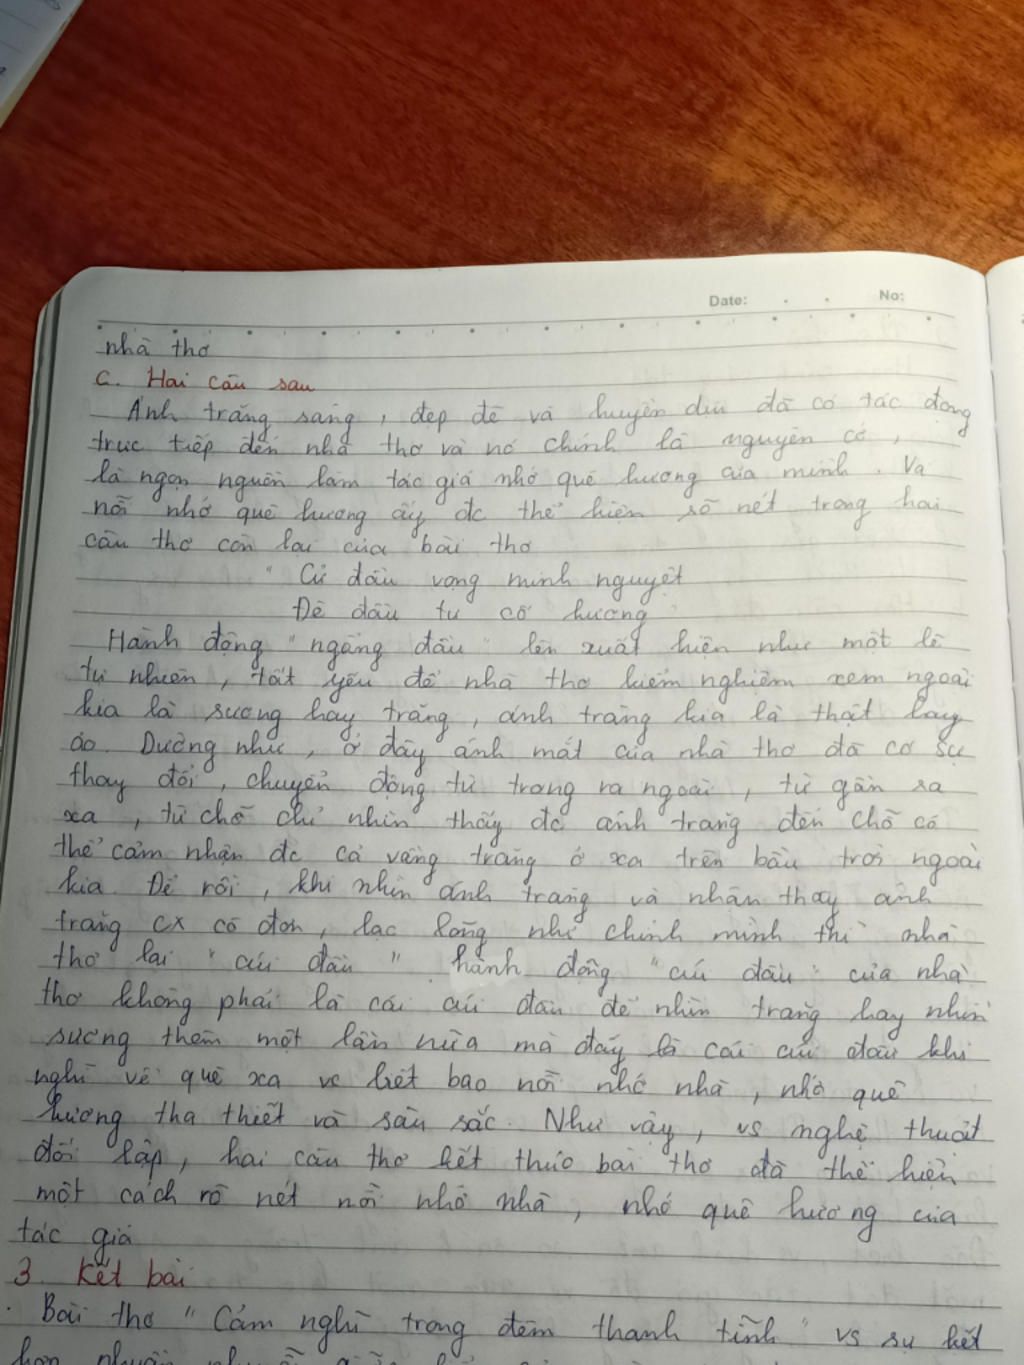 Date: No:
nhà thơ
C. Hai câu sau
Ánh trăng sáng, đẹp đẽ và huyền diệu đã có tác động
trực tiếp đến nhà thơ và nó chính là nguyên cớ,
là ngọn nguồn làm tác giả nhớ quê hương của mình. Và
nỗi nhớ quê hương ấy đc thể hiện rõ nét trong hai
câu thơ còn lại của bài thơ
" Cử đầu vọng minh nguyệt
Đê đầu tư cố hương "
Hành động " ngẩng đầu " lên xuất hiện như một lẽ
tự nhiên, tất yếu để nhà thơ kiểm nghiệm xem ngoài
kia là sương hay trăng, ánh trăng kia là thật hay
ảo. Dường như, ở đây ánh mắt của nhà thơ đã có sự
thay đổi, chuyển động từ trong ra ngoài, từ gần ra
xa, từ chỗ chỉ nhìn thấy đc ánh trăng đến chỗ có
thể cảm nhận đc cả vầng trăng ở xa trên bầu trời ngoài
kia. Để rồi, khi nhìn ánh trăng và nhận thấy ánh
trăng cx cô đơn, lạc lõng như chính mình thì nhà
thơ lại " cúi đầu " hành động " cúi đầu " của nhà
thơ không phải là cái cúi đầu để nhìn trăng hay nhìn
sương thêm một lần nữa mà đấy là cái cúi đầu khi
nghĩ về quê xa vs biết bao nỗi nhớ nhà, nhớ quê
hương tha thiết và sâu sắc. Như vậy, vs nghệ thuật
đối lập, hai câu thơ kết thúc bài thơ đã thể hiện
một cách rõ nét nỗi nhớ nhà, nhớ quê hương của
tác giả
3. Kết bài
. Bài thơ " Cảm nghĩ trong đêm thanh tĩnh " vs sự kết
hợp nhuần nhuyễn giữa